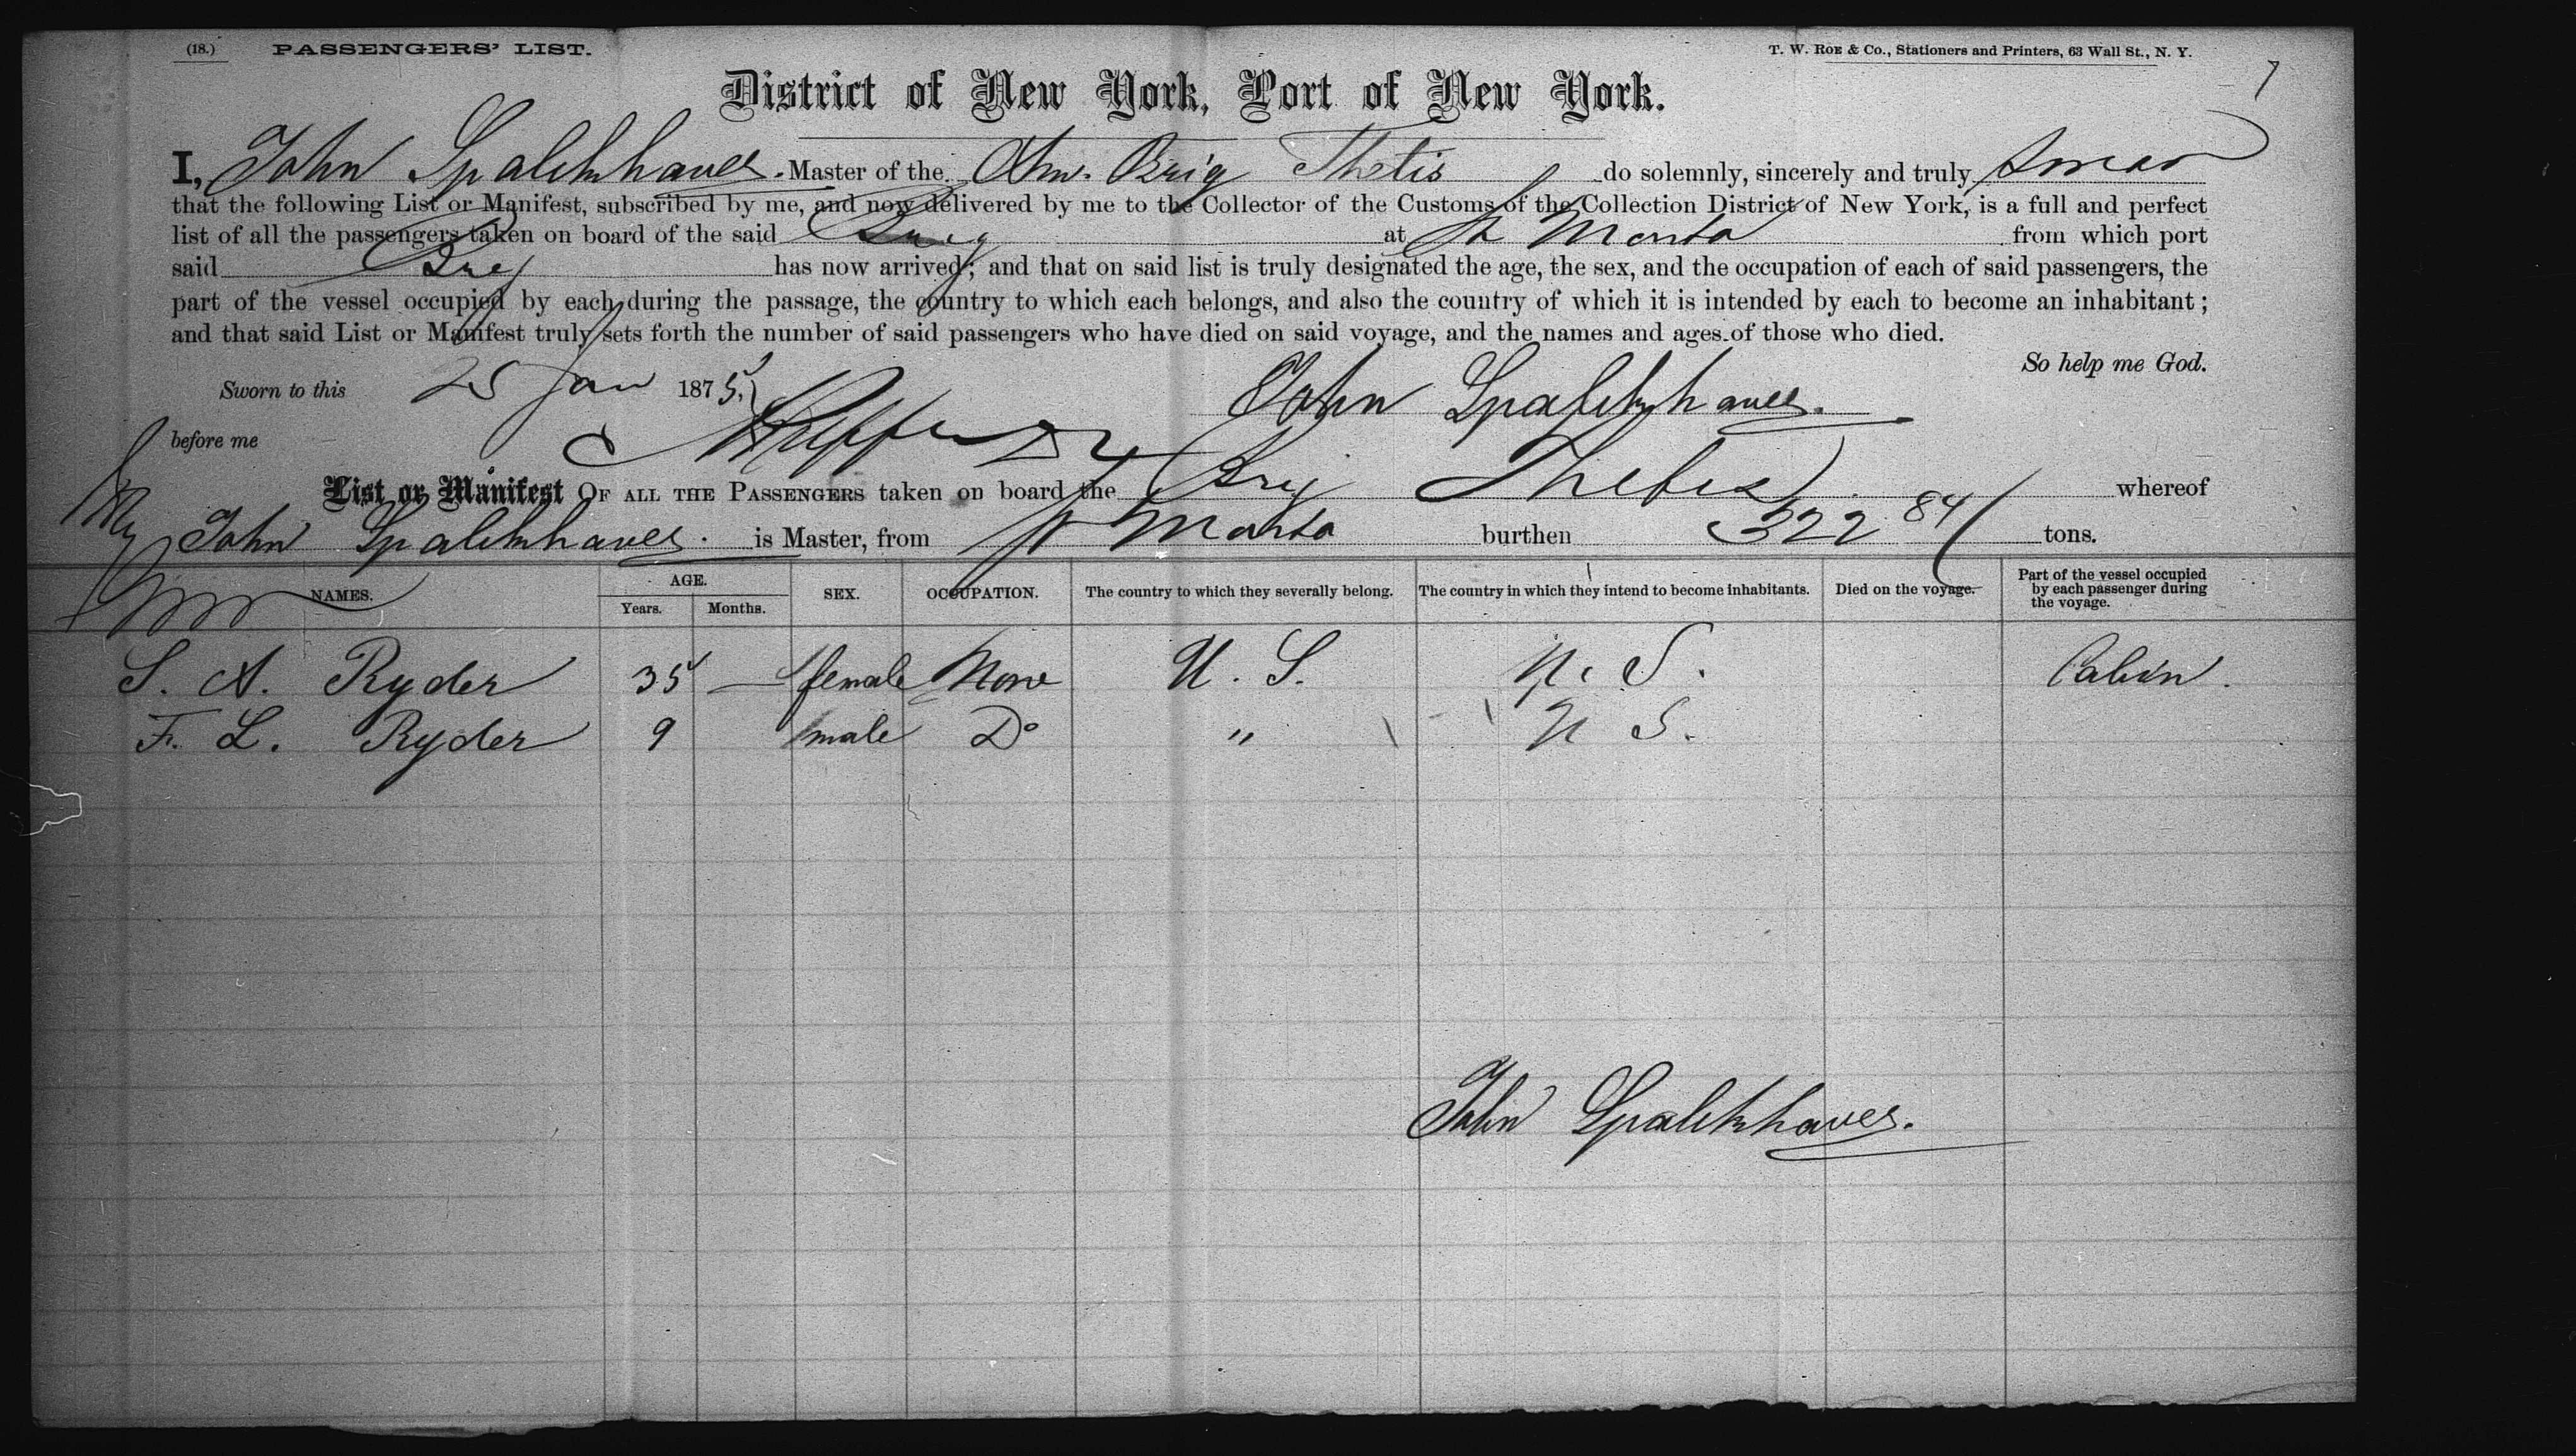 (18.) PASSENGERS' LIST. T. W. ROE & Co., Stationers and Printers, 63 Wall St., N. Y.
District of New York, Port of New York.
I, John Spalckhaver. Master of the Am. Brig Thetis do solemnly, sincerely and truly swear
that the following List or Manifest, subscribed by me, and now delivered by me to the Collector of the Customs of the Collection District of New York, is a full and perfect
list of all the passengers taken on board of the said Brig at St Marta from which port
said Brig has now arrived; and that on said list is truly designated the age, the sex, and the occupation of each of said passengers, the
part of the vessel occupied by each during the passage, the country to which each belongs, and also the country of which it is intended by each to become an inhabitant;
and that said List or Manifest truly sets forth the number of said passengers who have died on said voyage, and the names and ages of those who died.
So help me God.
Sworn to this 25 Jan 1875, John Spalckhaver.
before me
List or Manifest OF ALL THE PASSENGERS taken on board the Brig Thetis whereof
John Spalckhaver. is Master, from St Marta burthen 322 84/ tons.
NAMES. AGE. Years. Months. SEX. OCCUPATION. The country to which they severally belong. The country in which they intend to become inhabitants. Died on the voyage. Part of the vessel occupied by each passenger during the voyage.
S. A. Ryder 35 — female None U. S. U. S. Cabin.
F. L. Ryder 9 male Do " U S.
John Spalckhaver.